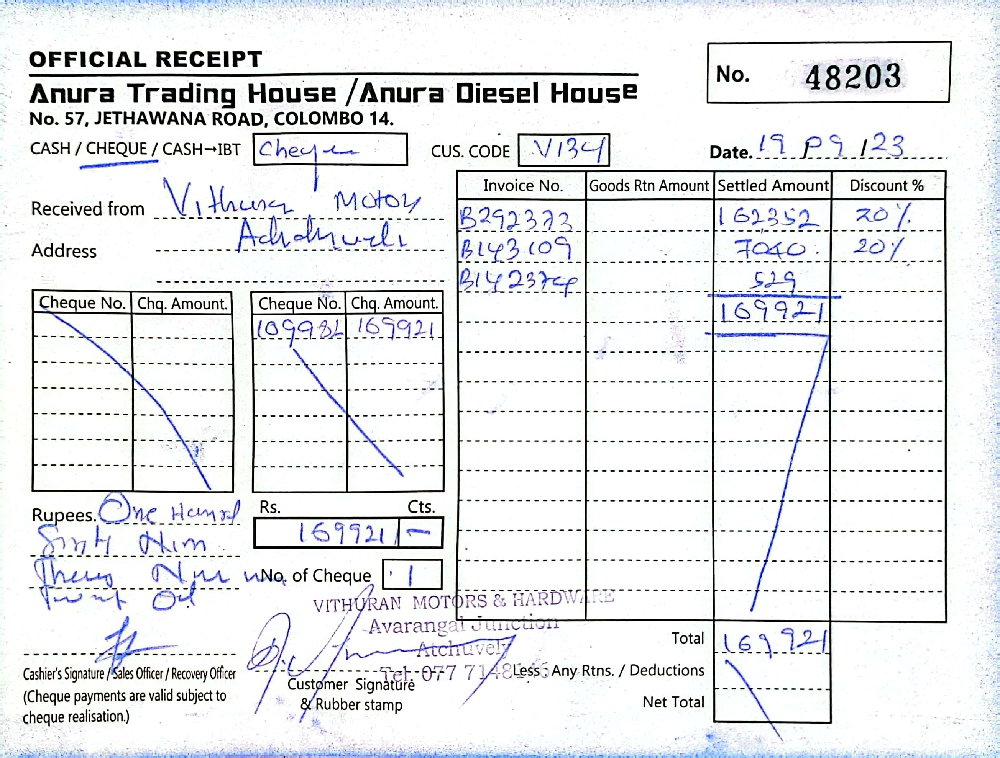 OFFICIAL RECEIPT
No. 48203
Anura Trading House / Anura Diesel House
No. 57, JETHAWANA ROAD, COLOMBO 14.
CASH / CHEQUE / CASH→IBT Cheque
CUS. CODE V134
Date. 19 09 / 23
Received from Vithuran Motors
Address
Invoice No. Goods Rtn Amount Settled Amount Discount %
B292373 162352 20%
B143109 7040. 20%
B142374 529
169921
Cheque No. Chq. Amount. Cheque No. Chq. Amount.
109982 169921
Rupees. One
Rs. Cts.
169921 -
No. of Cheque 1
VITHURAN MOTORS & HARDWARE
Avarangal Junction
Atchuvely
Tel: 077
Cashier's Signature / Sales Officer / Recovery Officer
(Cheque payments are valid subject to
cheque realisation.)
Customer Signature
& Rubber stamp
Total 169,921
Less : Any Rtns. / Deductions
Net Total